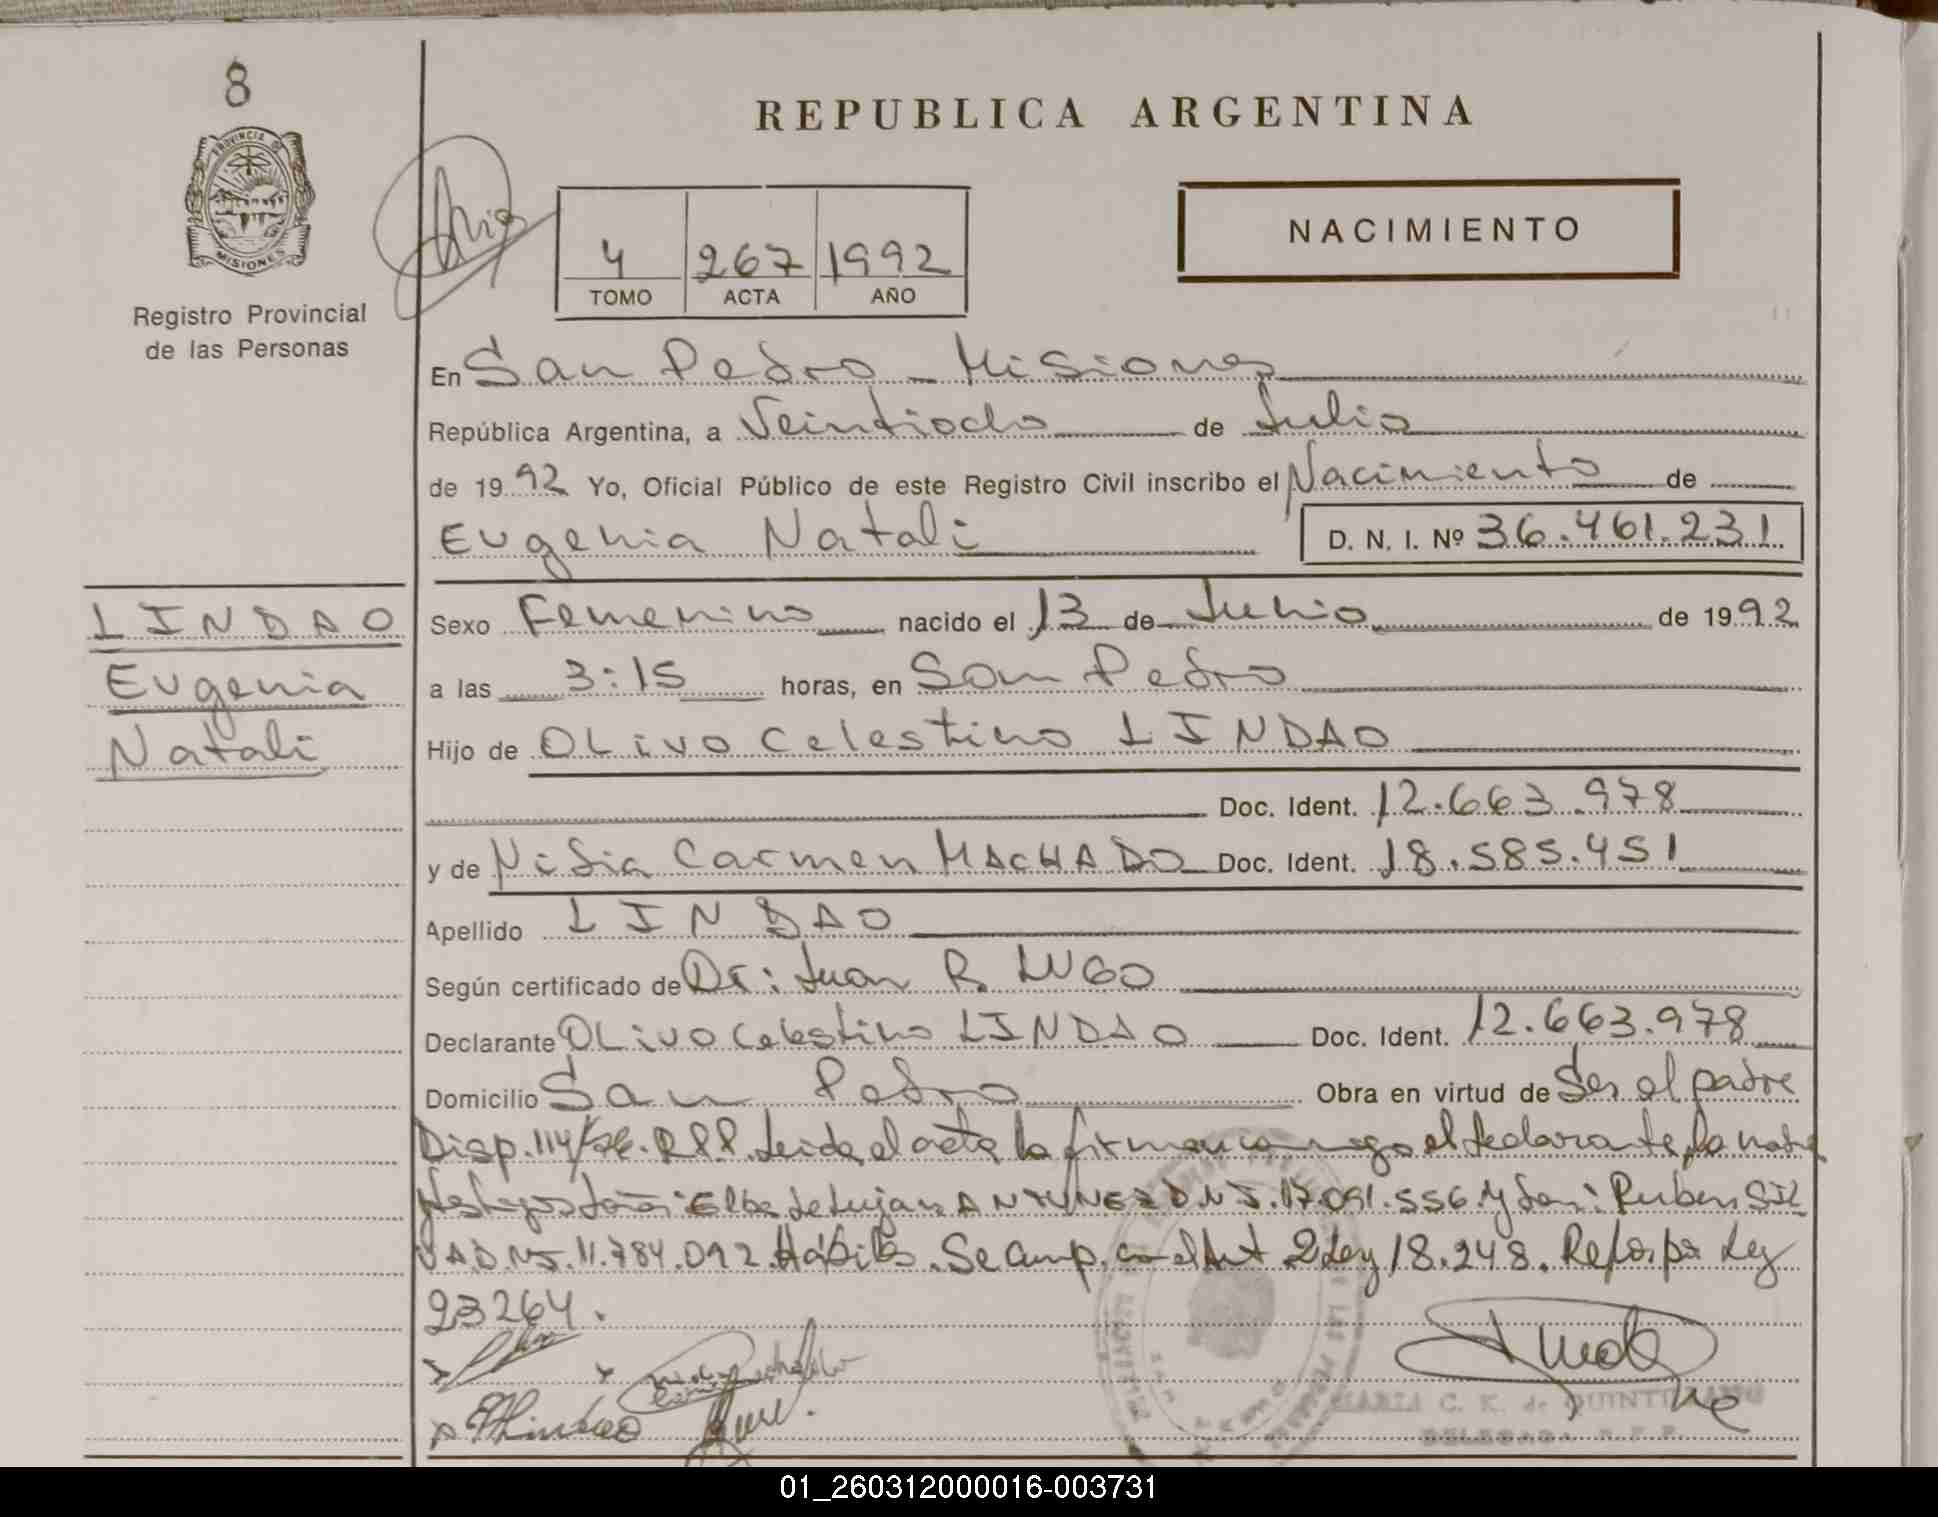 8
REPUBLICA ARGENTINA
PROVINCIA DE
MISIONES
Registro Provincial
de las Personas
4 267 1992
TOMO ACTA AÑO
NACIMIENTO
En San Pedro - Misiones
República Argentina, a Veintiocho de Julio
de 1992 Yo, Oficial Público de este Registro Civil inscribo el Nacimiento de
Eugenia Natali D. N. I. Nº 36.461.231
LINDAO
Eugenia
Natali
Sexo Femenino nacido el 13 de Junio de 1992
a las 3:15 horas, en San Pedro
Hijo de OLivo Celestino LINDAO
Doc. Ident. 12.663.978
y de Nidia Carmen MACHADO Doc. Ident. 18.585.451
Apellido LINDAO
Según certificado de Dr: Juan R. LUGO
Declarante OLivo Celestino LINDAO Doc. Ident. 12.663.978
Domicilio San Pedro Obra en virtud de Ser el padre
Disp. 114/ R.P.P. Leida el acta la firman conmigo el declarante, la madre
Elba de Lujan ANTUNEZ D.N.I. 17.091.556 y Ruben SIL
VA D.N.I. 11.784.092. Hábiles. Se Cump. con el Art 2 Ley 18.248. Ref. por Ley
23264.
MARIA C. K. de
DELEGADA R. P. P.
01_260312000016-003731